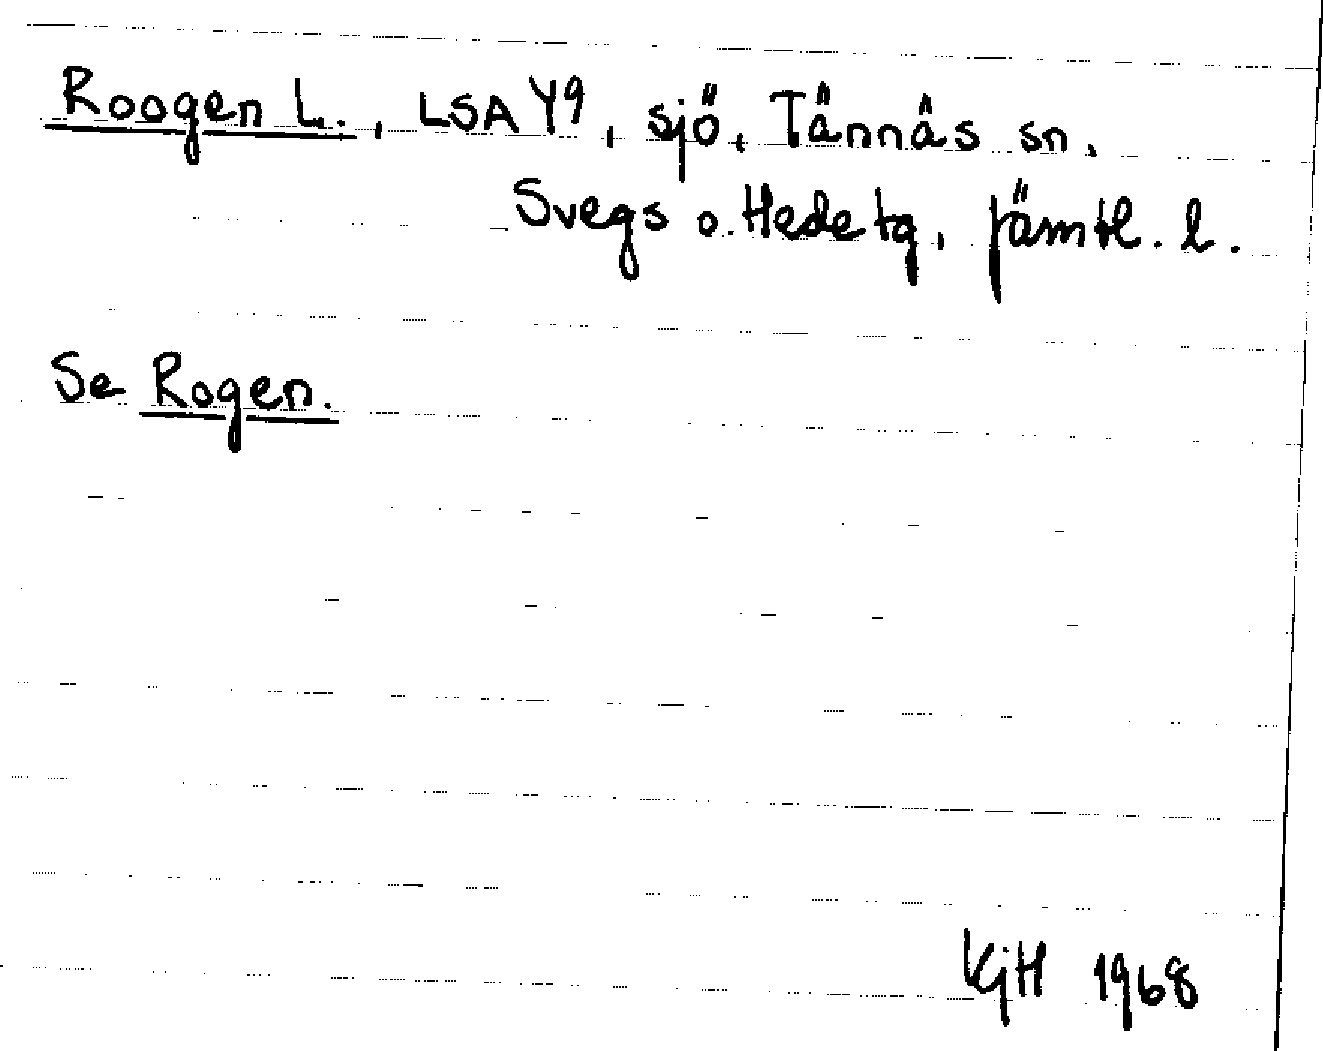 Roogen L., LSA Y9, sjö, Tännäs sn,
Svegs o. Hede tg, Jämtl. l.
Se Rogen.
KjH 1968